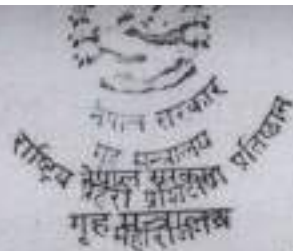 नेपाल सरकार
गृह मन्त्रालय
राष्ट्रिय प्रतिष्ठान
नेपाल सरकार
प्रहरी
गृह मन्त्रालय
महाराजगंज